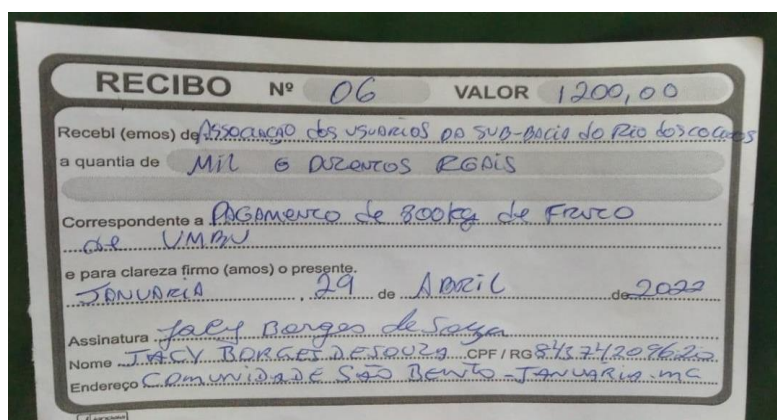 RECIBO Nº 06 VALOR 1200,00
Recebi (emos) de Associação dos usuarios da SUB-Bacia do Rio dos cochos
a quantia de Mil e Duzentos REAIS
Correspondente a PAGAMENTO de 800kg de FRUTO
de UMBU
e para clareza firmo (amos) o presente.
JANUARIA, 29 de ABRIL de 2022
Assinatura Jacy Borges de Souza
Nome JACY BORGES DE SOUZA CPF / RG
Endereço COMUNIDADE SÃO BENTO - JANUARIA - MG